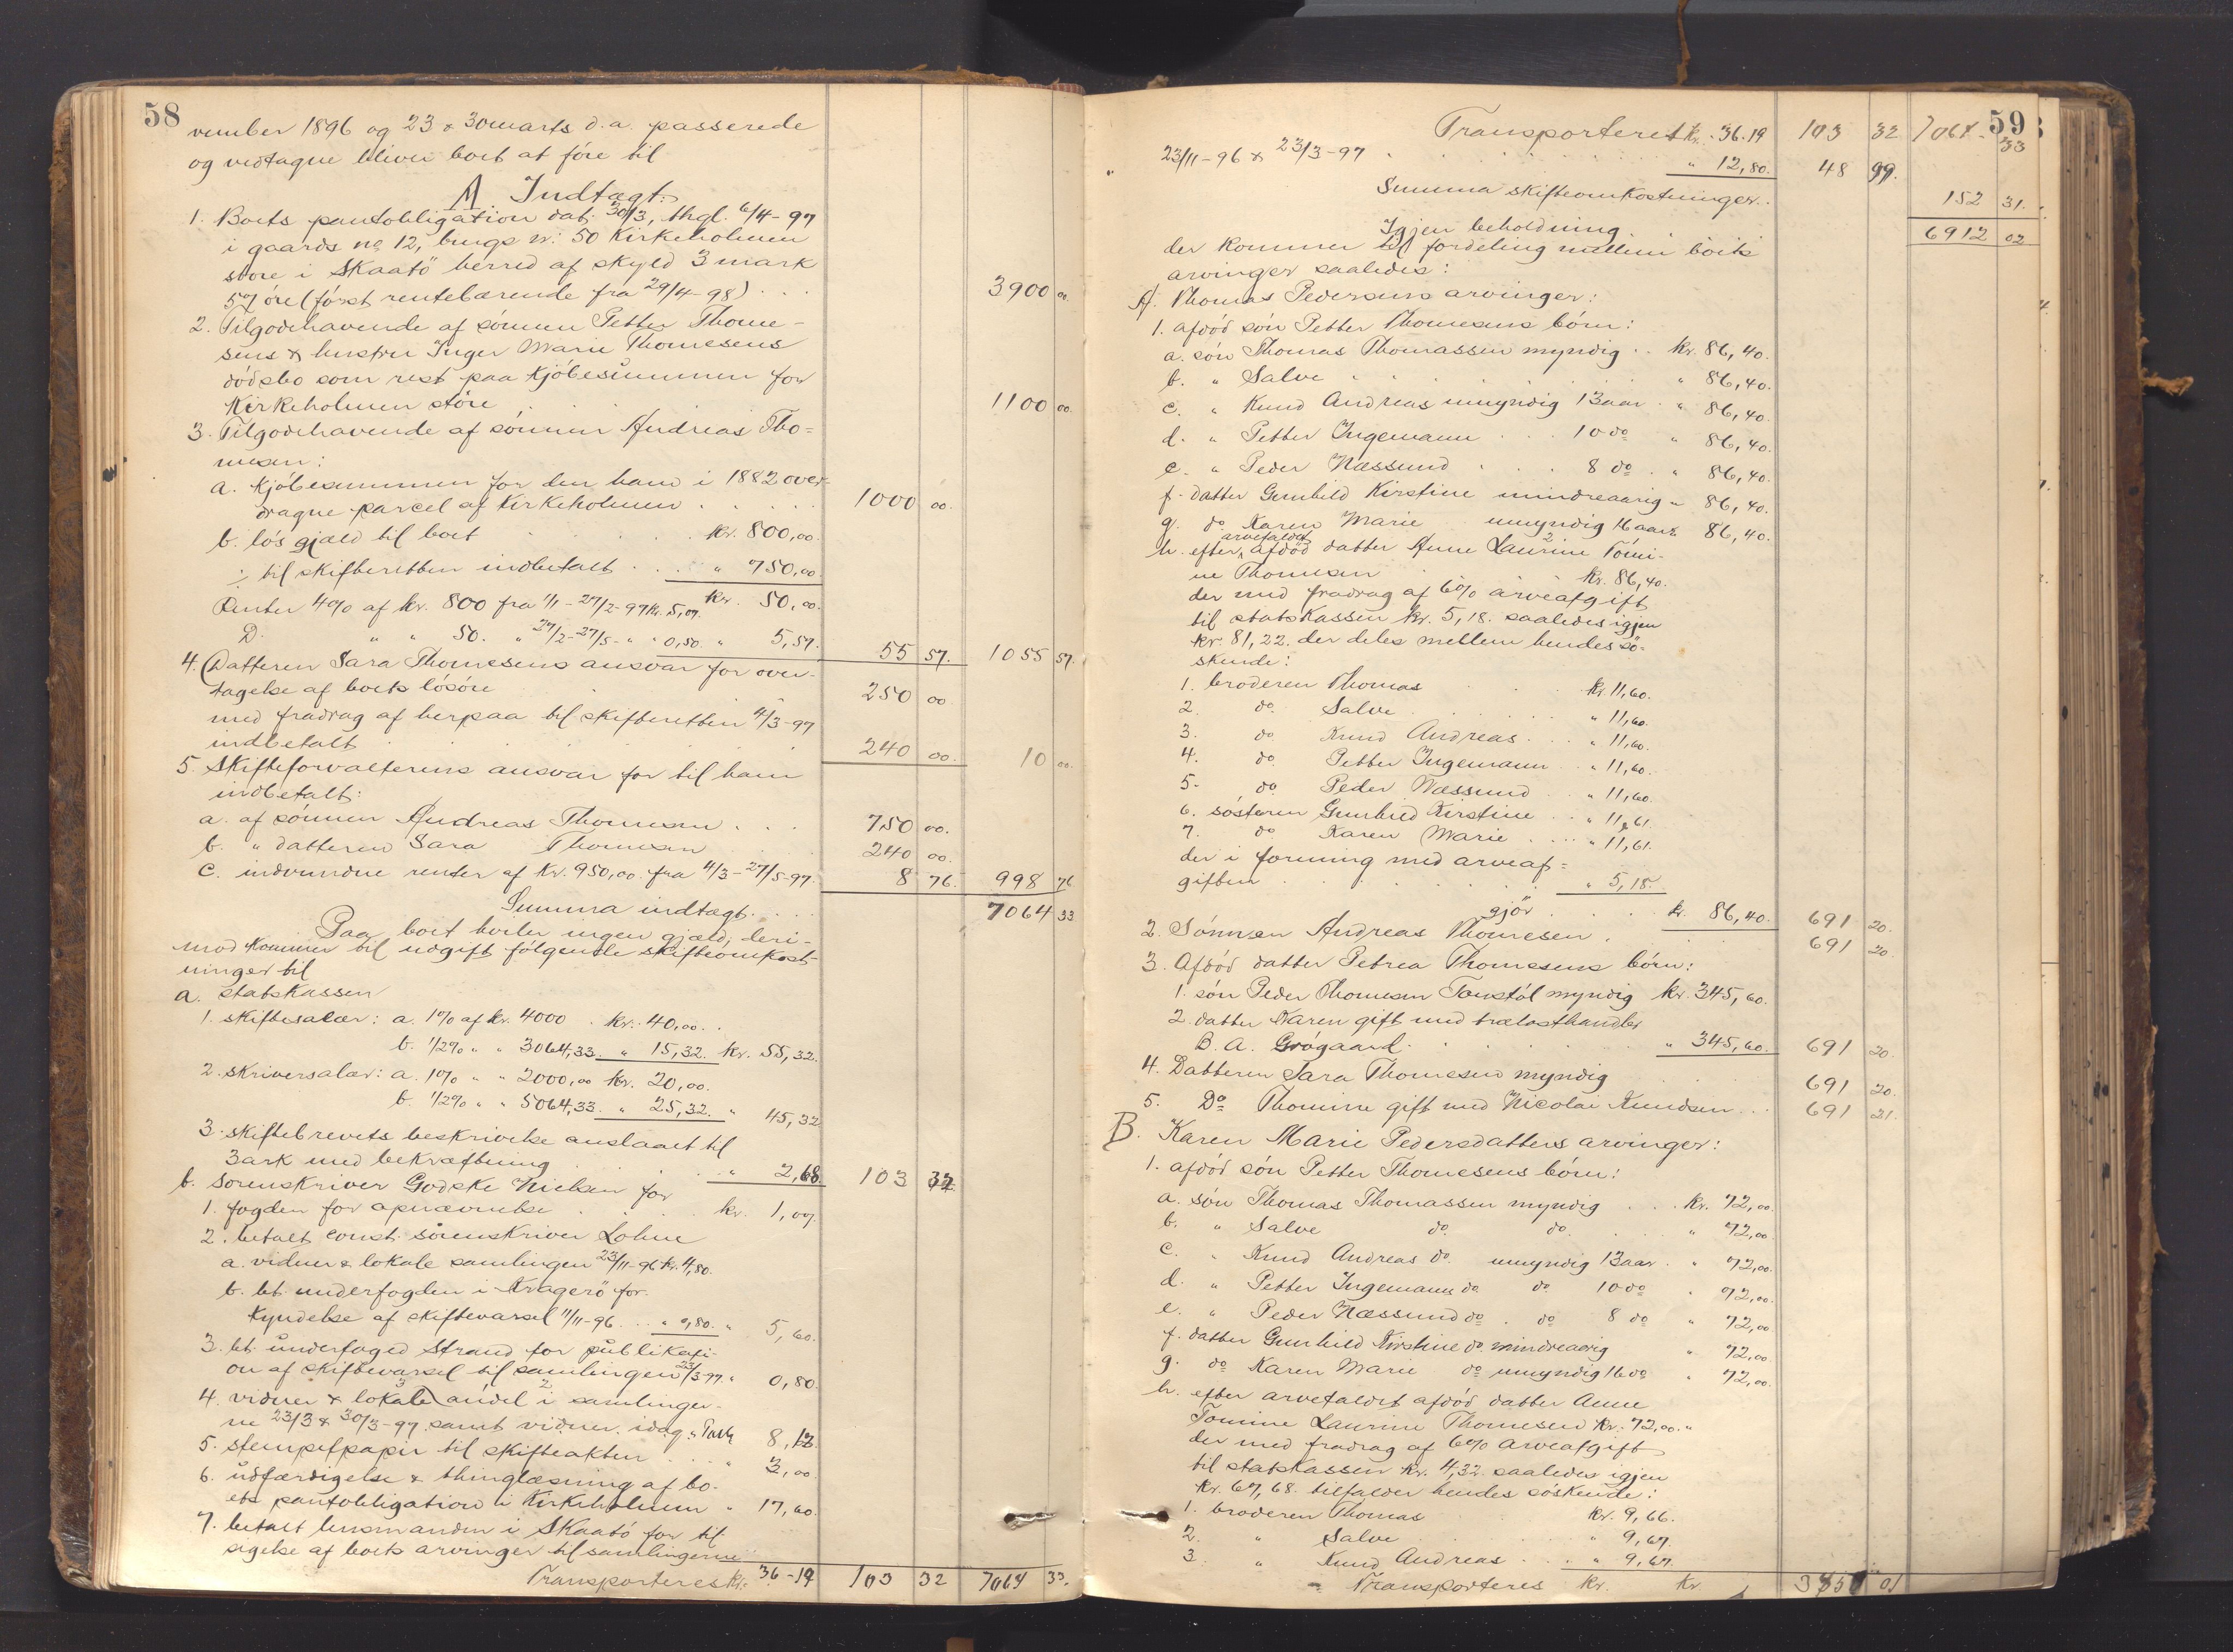 58
vember 1896 og 23 & 30 marts d.a. passerede
og vedtagne bliver boet at føre til
A. Indtægt:
1. Boets pantobligation dat. 30/3, thgl. 6/4-97
i gaards no 12, brugs nr: 50 Kirkeholmen
store i Skaatö herred af skyld 3 mark
57 øre (først rentebærende fra 29/4-98) . . . 3900 00.
2. Tilgodehavende af sønnen Petter Thome-
sens & hustru Inger Marie Thomesens
dødsbo som rest paa kjøbesummen for
Kirkeholmen støre . . . 1100 00.
3. Tilgodehavende af sønnen Andreas Tho=
mesen:
a. Kjøbesummen for den ham i 1882 over-
dragne parcel af Kirkeholmen . . . . . 1000 00.
b. løs gjæld til boet . . . . . kr. 800,00.
÷ til skifteretten indbetalt . . . " 750,00
kr. 50,00.
Renter 4% af kr. 800 fra 1/1-27/2-97 kr. 5,07.
D. " " 50. " 27/2-27/5- " " 0,50. " 5,57. 55 57. 1055 57.
4. Datteren Sara Thomesens ansvar for over-
tagelse af boets løsøre 250 00
med fradrag af herpaa til skifteretten 4/3-97
indbetalt . . . . . . . 240 00. 10 00.
5. Skifteforvalterens ansvar for til ham
indbetalt:
a. af sønnen Andreas Thomesen . . . 750 00.
b. " datteren Sara Thomesen . . 240 00.
c. indvundne renter af kr. 950,00. fra 4/3-27/5-97. 8 76. 998 76
Summa indtægt. . . . 7064 33
Paa boet hviler ingen gjæld, deri-
mod kommer til udgift følgende skifteomkost-
ninger til
a. statskassen
1. skiftesalær: a. 1% af kr. 4000 . kr. 40,00. .
b. 1/2% " " 3064,33. " 15,32. kr. 55,32.
2. skriversalær: a. 1% " " 2000,00 kr. 20,00.
b. 1/2% " " 5064,33. " 25,32. " 45,32
3. skiftebrevets beskrivelse anslaaet til
3 ark med bekræftning . . . . . " 2,68. 103 32
b. sorenskriver Godske Nielsen for
1. fogden for opnævnelse . . . . kr. 1,00.
2. betalt const. sorenskriver Lohne
a. vidner & lokale samlingen 23/11-96 kr. 4,80.
b. bt. underfogden i Kragerö for
kyndelse af skiftevarsel 11/11-96 . . " 0,80. " 5,60.
3. bt. underfoged Strand for publikati-
on af skiftevarsel til samlingen 23/3-97. " 0,80.
4. vidner & lokale andel i samlinger-
ne 23/3 & 30/3-97 samt vidner idag . 8,12.
5. stempelpapir til skifteakten . . . " 3,00.
6. udfærdigelse & thinglæsning af bo-
ets pantobligation i Kirkeholmen " 17,60.
7. betalt lensmanden i Skaatö for til
sigelse af boets arvinger til samlingerne
Transporteres kr. 36-19 103 32 7064 33.
59
Transporteret kr. 36.19 103 32 7064 33
" 23/11-96 & 23/3-97 . . . . . . . " 12,80. 48 99.
Summa skifteomkostninger. . 152 31.
Igjen beholdning. . 6912 02
der kommer til fordeling mellem boets
arvinger saaledes:
A. Thomas Pedersens arvinger:
1. afdød søn Petter Thomesens børn:
a. søn Thomas Thomassen myndig . . kr. 86,40.
b. " Salve . . . . . . . " 86,40.
c. " Knud Andreas umyndig 13 aar . " 86,40.
d. " Petter Ingemann . . . 10 do " 86,40.
e. " Peder Næssund . . . 8 do . " 86,40.
f. datter Gunhild Kirstine mindreaarig " 86,40.
g. do. Karen Marie umyndig 16 aar. 86,40.
arvefaldet
h. efter afdød datter Anne Laurine Tomi-
ne Thomesen kr. 86,40.
der med fradrag af 6% arveafgift
til statskassen kr. 5,18. saaledes igjen
kr. 81,22. der deles mellem hendes sø-
skende:
1. broderen Thomas . . . kr. 11,60.
2. do. Salve . . . . . " 11,60.
3. do Knud Andreas. . . " 11,60.
4. do. Petter Ingemann . . " 11,60.
5. do Peder Næssund . . " 11,60.
6. søsteren Gunhild Kirstine . . " 11,61.
7. do Karen Marie . . . . " 11,61.
der i forening med arveaf=
giften . . . . . . . . " 5,18.
gjør . . . . kr. 86,40. 691 20.
2. Sønnen Andreas Thomesen . . . 691 20.
3. Afdød datter Petrea Thomesens børn:
1. søn Peder Thomesen Tønstøl myndig kr. 345,60.
2. datter Karen gift med trælasthandler
B. A. Grøgaard . . . . . " 345,60. 691 20.
4. Datteren Sara Thomesen myndig . . . 691 20.
5. Do Thomine gift med Nicolai Knudsen . . . 691 21.
B. Karen Marie Pedersdatters arvinger:
1. afdød søn Petter Thomesens børn:
a. søn Thomas Thomassen myndig . . . . kr. 72,00.
b. " Salve do. do. . . . " 72,00
c. " Knud Andreas do. umyndig 13 aar. " 72,00.
d. " Petter Ingemann do. do 10 do " 72,00.
e. " Peder Næssund do . do 8 do " 72,00
f. datter Gunhild Kirstine do. mindreaarig " 72,00.
g. do Karen Marie do umyndig 16 do " 72,00.
h. efter arvefaldet afdød datter Anne
Tomine Laurine Thomesen kr. 72,00. "
der med fradrag af 6% arveafgift
til statskassen kr. 4,32. saaledes igjen
kr. 67,68. tilfalder hendes søskende:
1. broderen Thomas kr. 9,66.
2. " Salve . . . " 9,67.
3. " Knud Andreas . . . " 9,67
Transporteres kr. kr. 01